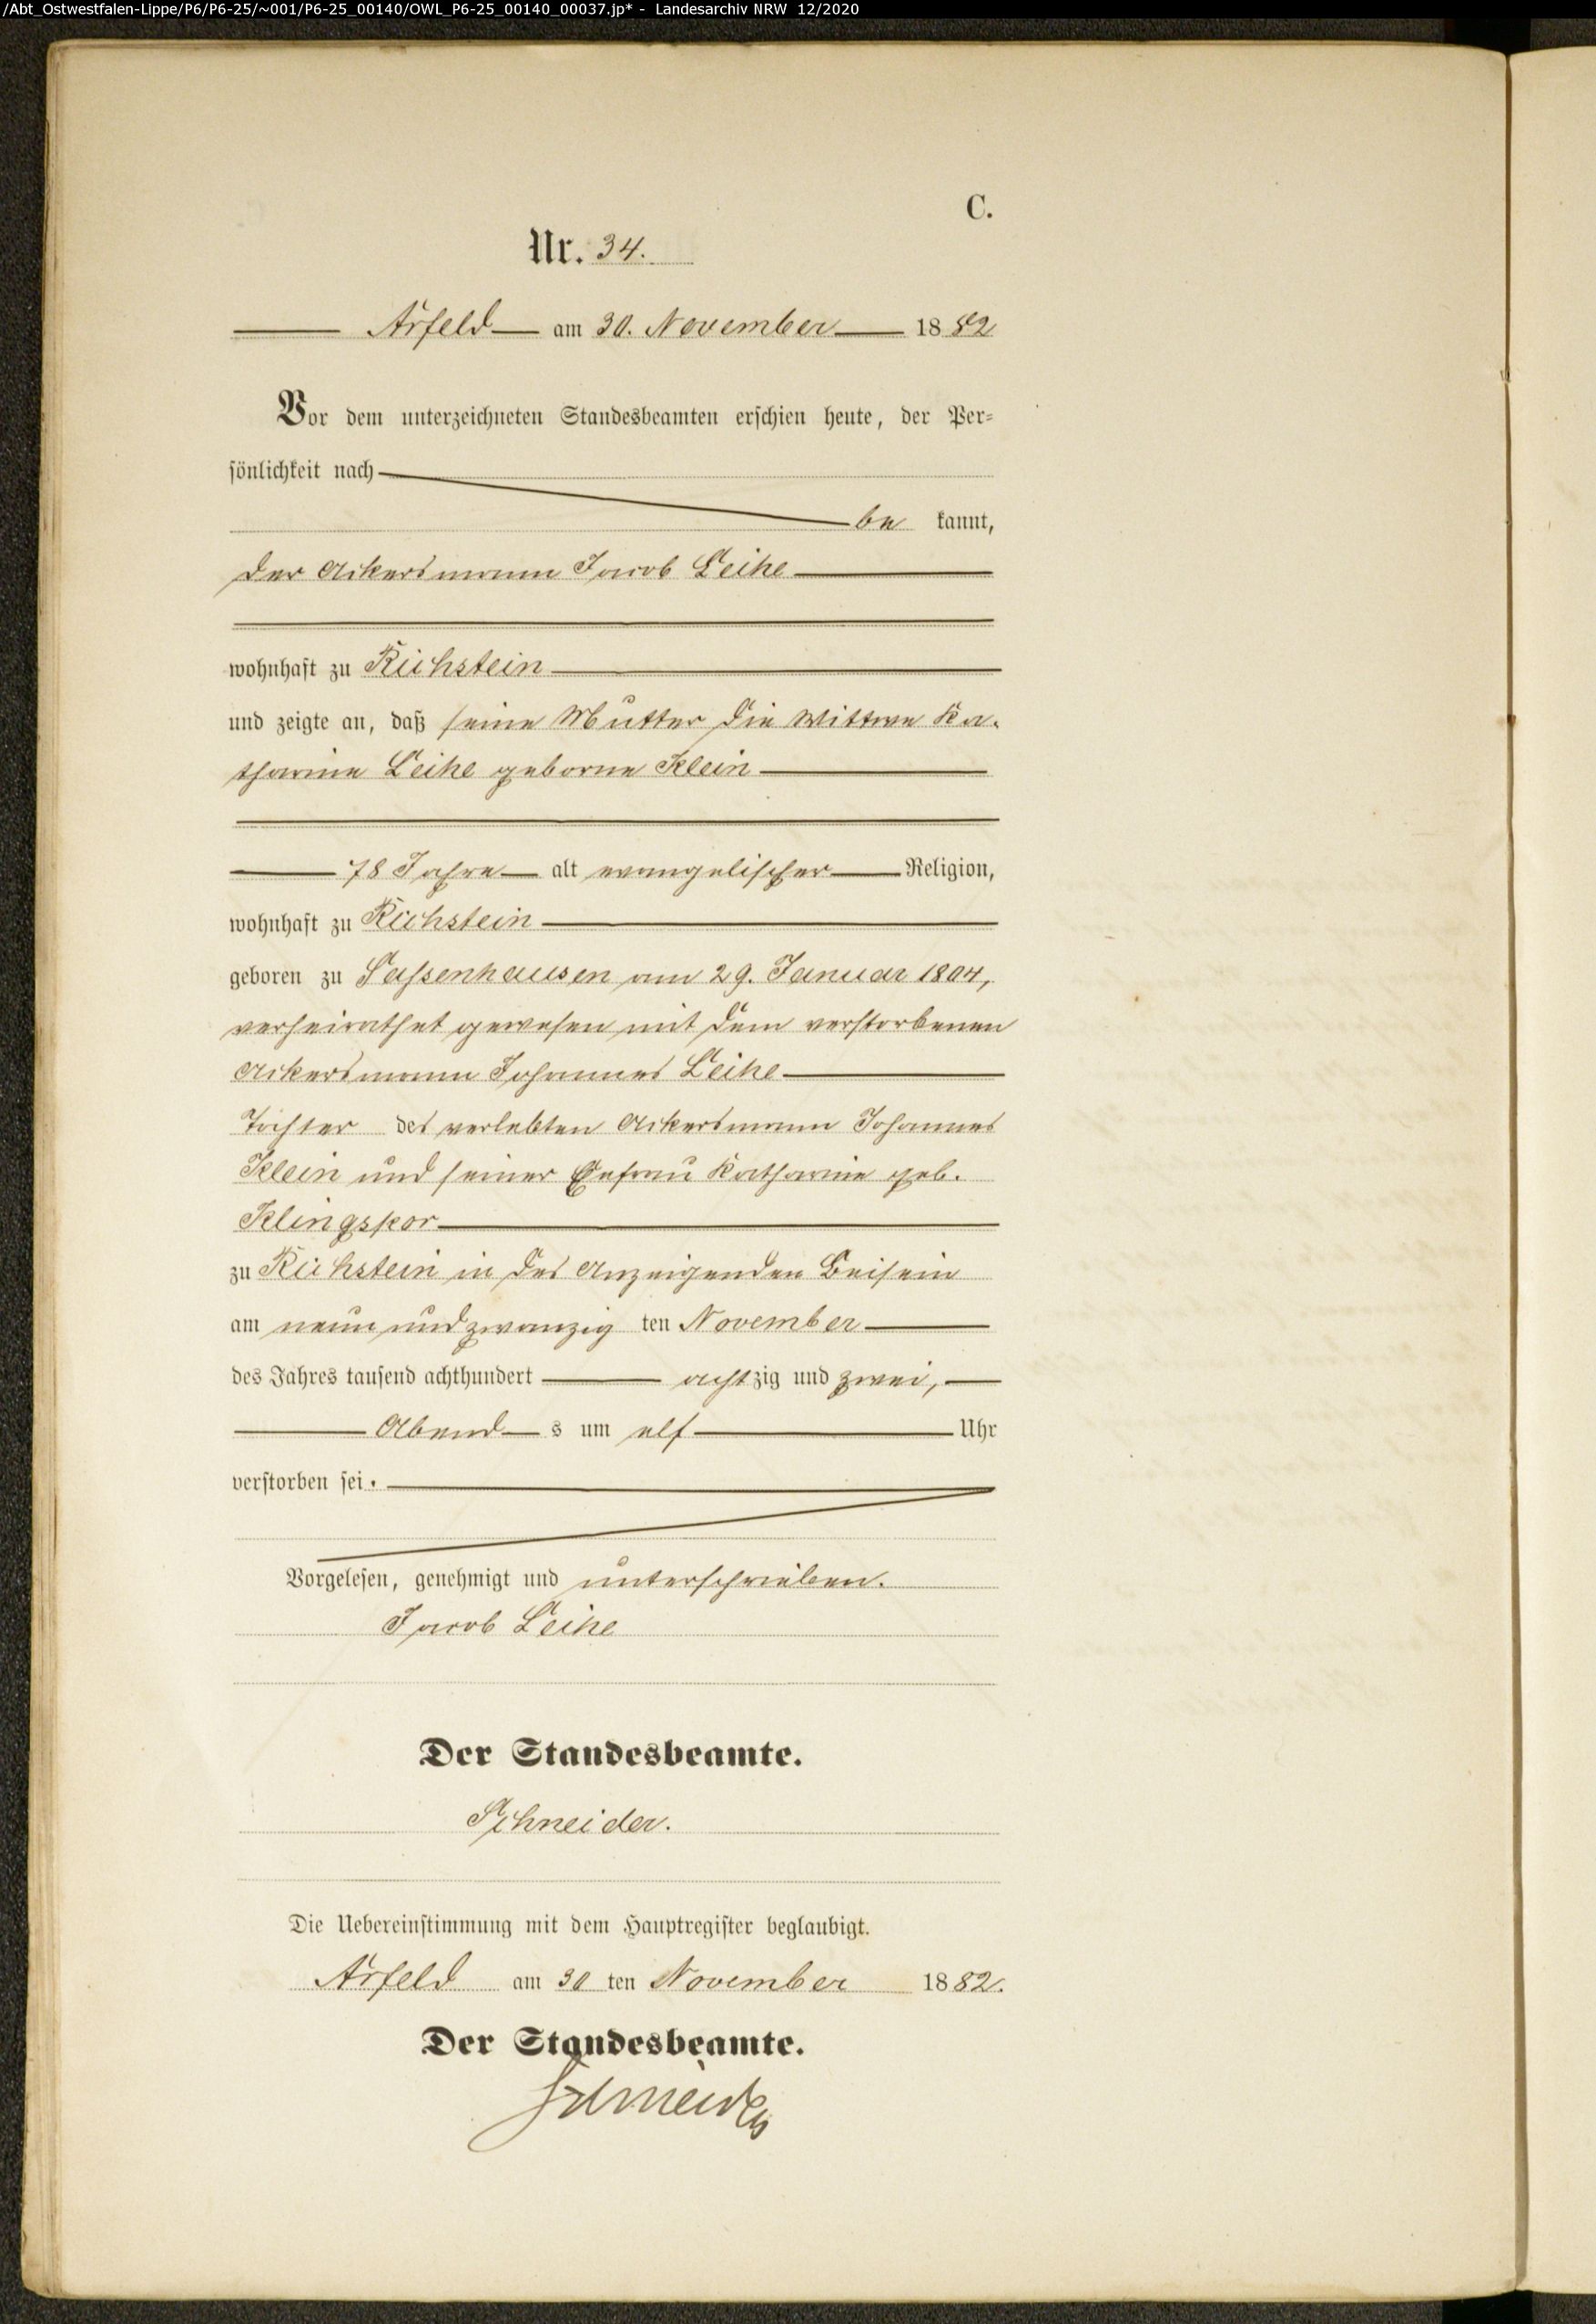 /Abt_Ostwestfalen-Lippe/P6/P6-25/~001/P6-25_00140/OWL_P6-25_00140_00037.jp* - Landesarchiv NRW 12/2020
C.
Nr. 34.
Arfeld am 30. November 1882
Vor dem unterzeichneten Standesbeamten erschien heute, der Per-
sönlichkeit nach
be kannt,
der Ackersmann Jacob Leihe
wohnhaft zu Richstein
und zeigte an, daß seine Mutter die Wittwe Ka-
tharine Leihe geborne Klein
78 Jahre alt evangelischer Religion,
wohnhaft zu Richstein
geboren zu Sassenhausen am 29. Januar 1804,
verheirathet gewesen mit dem verstorbenen
Ackersmann Johannes Leihe
Tochter des verlebten Ackersmann Johannes
Klein und seiner Ehefrau Katharine geb.
Klingspor
zu Richstein in des Anzeigenden Beisein
am neun und zwanzig ten November
des Jahres tausend achthundert achtzig und zwei,
Abend s um elf Uhr
verstorben sei.
Vorgelesen, genehmigt und unterschrieben.
Jacob Leihe
Der Standesbeamte.
Schneider.
Die Uebereinstimmung mit dem Hauptregister beglaubigt.
Arfeld am 30 ten November 1882.
Der Standesbeamte.
Schneider